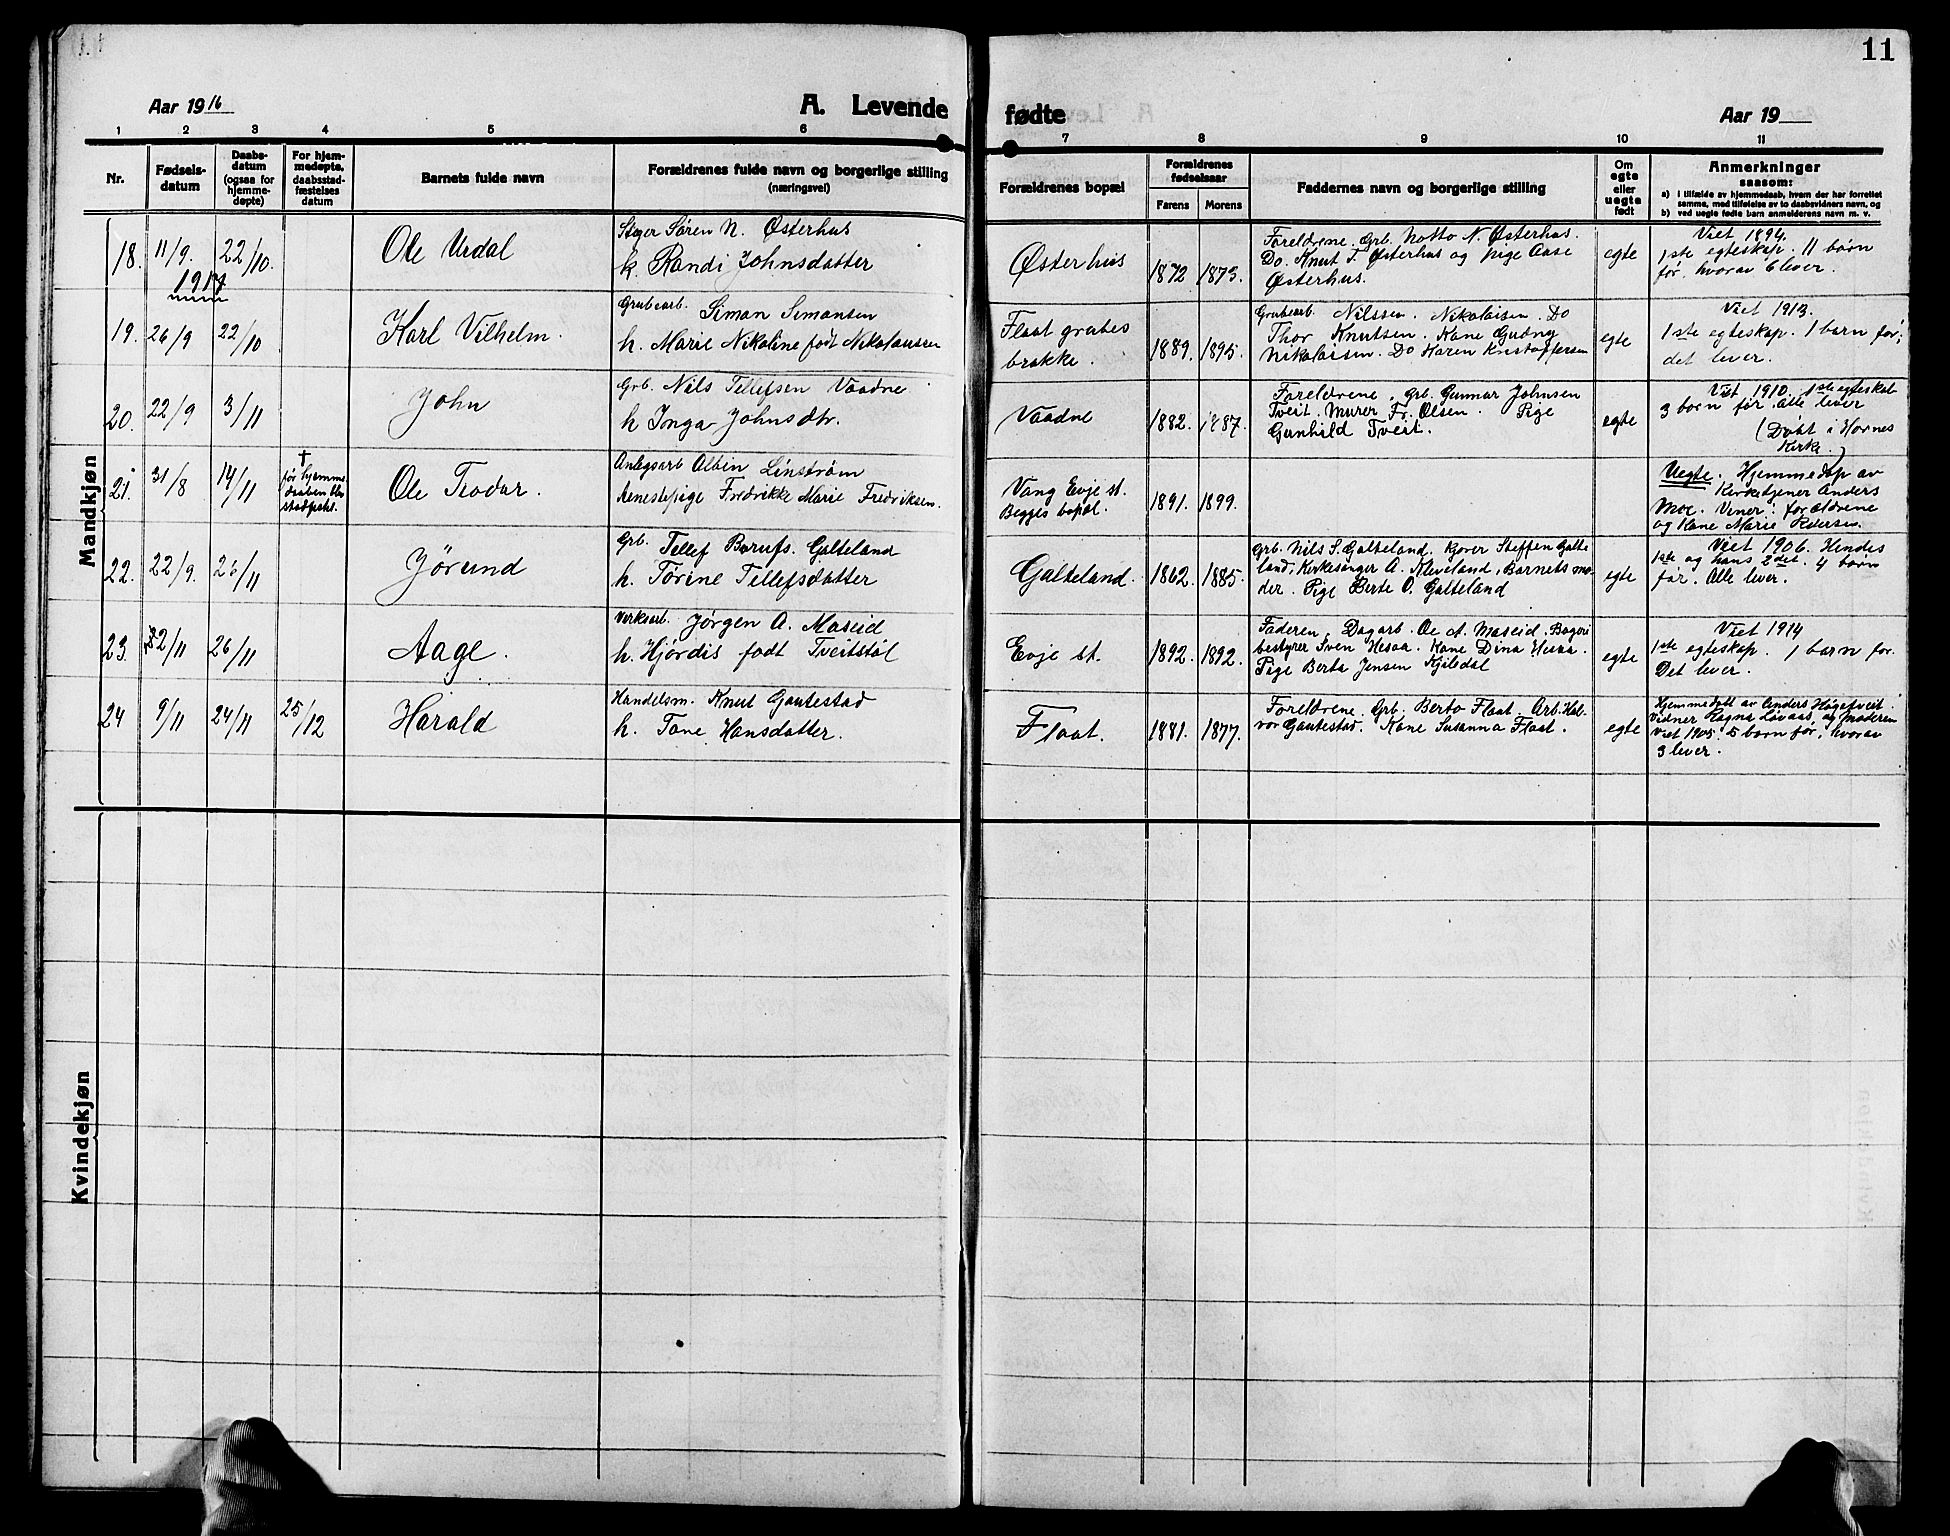 11
Aar 1916
A. Levende
fødte
Aar 19
1 2 3 4 5 6 7 8 9 10 11
Nr.
Fødsels-
datum
Daabs-
datum
(ogsaa for
hjemme-
døpte)
For hjem-
medøpte,
daabsstad-
fæstelses
datum
Barnets fulde navn
Forældrenes fulde navn og borgerlige stilling
(næringsvei)
Forældrenes bopæl
Forældrenes
fødselsaar
Farens Morens
Faddernes navn og borgerlige stilling
Om
egte
eller
uegte
født
Anmerkninger
saasom:
a) i tilfælde av hjemmedaab, hvem der har forrettet
samme, med tilføielse av to daabsvidners navn, og
b) ved uegte fødte barn anmelderens navn m. v.
Mandkjøn
18. 11/9. 22/10. Ole Urdal
1917
Søren N. Østerhus
k. Randi Johnsdatter
Østerhus 1872 1873.
Foreldrene. Grb. Notto N. Østerhus.
Do. Knut T. Østerhus og pige Aase
Østerhus.
egte
Viet 1894.
1ste egteskap. 11 børn
før, hvorav 6 lever.
19. 26/9 22/10 Karl Vilhelm.
Grubearb. Simon Simonsen
h. Marie Nikoline født Nikolaussen
Flaat grubes
brakke. 1889. 1895.
Grubearb. Nilssen. Nikolaisen. Do
Thor Knutsen. Kone Gudny
Nikolaisen. Do Karen Kristoffersen
egte
Viet 1913.
1ste egteskap. 1 barn før,
det lever.
20. 22/9 3/11 John
Grb. Nils Tellefsen Vaadne
h Inga Johnsdtr.
Vaadne 1882. 1887.
Foreldrene, Grb. Gunnar Johnsen
Tveit. Murer Fr. Olsen. Pige
Gunhild Tveit.
egte
Viet 1910. 1ste egteskab
3 born før. alle lever
(Døbt i Hornes
Kirke)
21. 31/8 14/11
†
før hjemme
daaben blev
stadfæstet.
Ole Teodor.
Anlegsarb Albin Linstrøm
Fredrikke Marie Fredriksen.
Vang Evje st.
Begges bopæl. 1891. 1899.
Uegte. Hjemmedøp av
Kirketjener Anders
Moe. Viner: forældrene
og Kone Marie Pedersen.
22. 22/9. 26/11 Jørund
Grb. Tellef Barufs. Galteland
h. Torine Tellefsdatter
Galteland. 1862. 1885.
Grb. Nils S. Galteland. Steffen Galte
land, Kirkesanger A. Kleveland, Barnets mo
der. Pige Berte O. Galteland
egte
Viet 1906. Hendes
1ste og hans 2det. 4 børn
før. Alle lever.
23. 2/11 26/11 Aage.
Verksarb. Jørgen A. Maseid
h. Hjørdis født Tveitstøl
Evje st. 1892. 1892.
Faderen, Dagarb. Ole A. Maseid. Bageri
bestyrer Sven Hesaa. Kone Dina Hesaa.
Pige Berta Jensen Kjildal
egte
Viet 1914
1ste egteskap. 1 barn før.
Det lever.
24 9/11 24/11 25/12 Harald
Handelsm. Knut Gautestad
h. Tone Hansdatter.
Flaat. 1881. 1877.
Foreldrene. Grb. Berto Flaat. Arb. Hal-
vor Gautestad. Kone Susanna Flaat.
egte
Hjemmedøtt av Anders Høgetveit.
Vidner Ragna Lovaas, og moderen
Viet 1905. 5 barn før, hvorav
3 lever.
Kvindekjøn